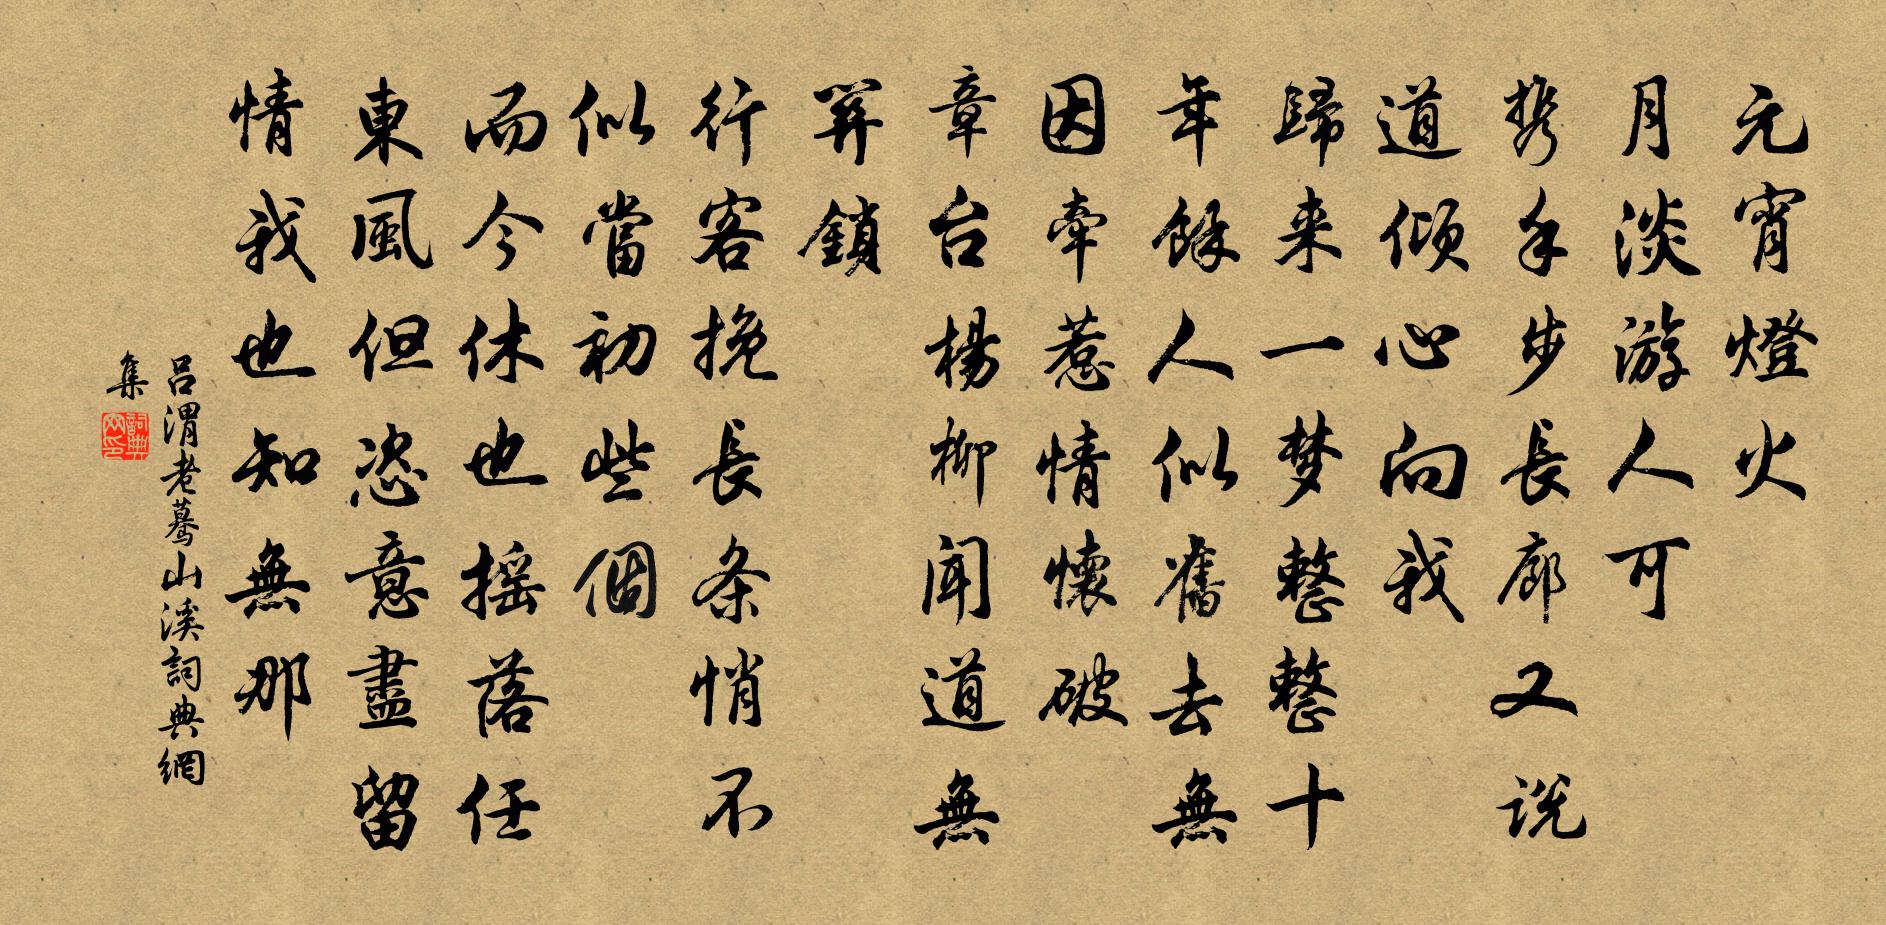 元宵燈火
月淡游人可
携手步長廊又説
道傾心向我
歸来一梦整整十
年餘人似舊去無
因牽惹情懷破
章台楊柳聞道無
關鎖
行客挽長条悄不
似當初些個
而今休也摇落任
東風但恣意盡留
情我也知無那
吕渭老驀山溪詞典網
集
詞典網印